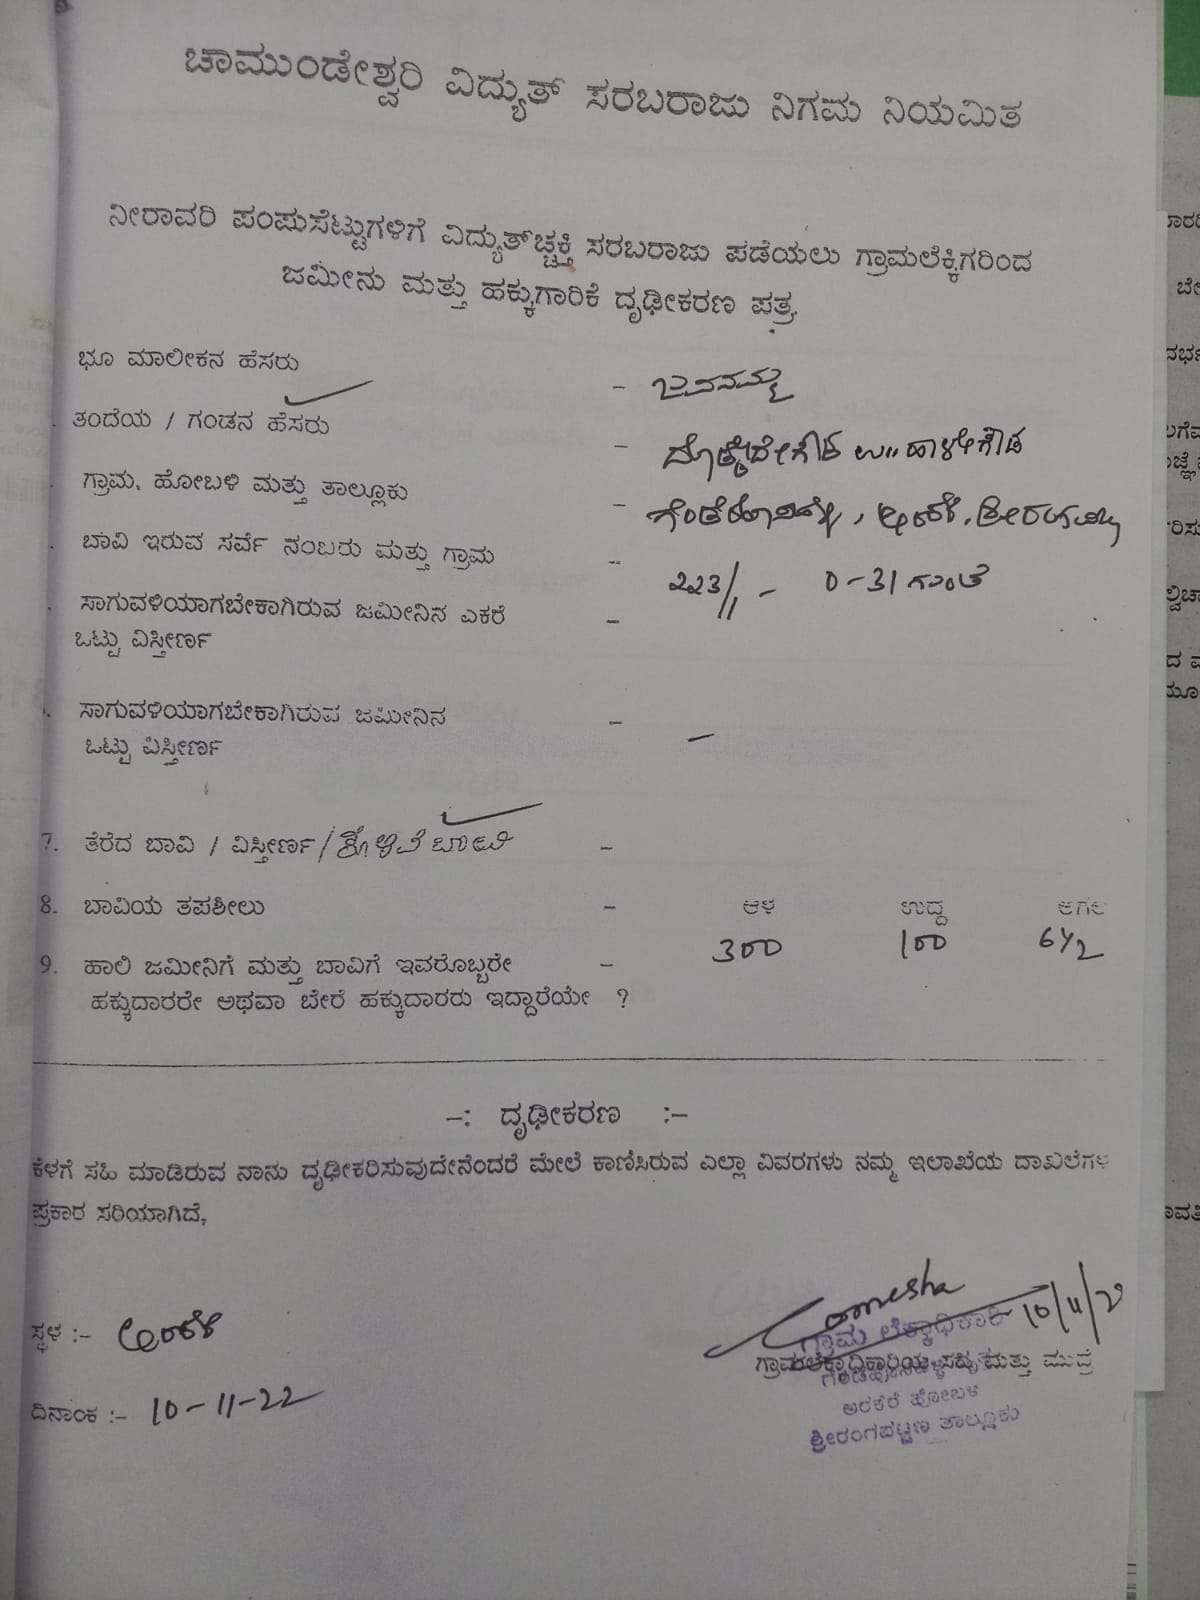 ಚಾಮುಂಡೇಶ್ವರಿ ವಿದ್ಯುತ್ ಸರಬರಾಜು ನಿಗಮ ನಿಯಮಿತ
ನೀರಾವರಿ ಪಂಪುಸೆಟ್ಟುಗಳಿಗೆ ವಿದ್ಯುತ್‌ಚ್ಛಕ್ತಿ ಸರಬರಾಜು ಪಡೆಯಲು ಗ್ರಾಮಲೆಕ್ಕಿಗರಿಂದ
ಜಮೀನು ಮತ್ತು ಹಕ್ಕುಗಾರಿಕೆ ದೃಢೀಕರಣ ಪತ್ರ
ಭೂ ಮಾಲೀಕನ ಹೆಸರು -
ತಂದೆಯ / ಗಂಡನ ಹೆಸರು - ಹಾಳೇಗೌಡ
ಗ್ರಾಮ, ಹೋಬಳಿ ಮತ್ತು ತಾಲ್ಲೂಕು - ಅರಕೆರೆ,
ಬಾವಿ ಇರುವ ಸರ್ವೆ ನಂಬರು ಮತ್ತು ಗ್ರಾಮ - 223/1 - 0-31 ಗುಂಟೆ
ಸಾಗುವಳಿಯಾಗಬೇಕಾಗಿರುವ ಜಮೀನಿನ ಎಕರೆ -
ಒಟ್ಟು ವಿಸ್ತೀರ್ಣ
ಸಾಗುವಳಿಯಾಗಬೇಕಾಗಿರುವ ಜಮೀನಿನ - -
ಒಟ್ಟು ವಿಸ್ತೀರ್ಣ
7. ತೆರೆದ ಬಾವಿ / ವಿಸ್ತೀರ್ಣ / ಕೊಳವೆ ಬಾವಿ -
8. ಬಾವಿಯ ತಪಶೀಲು - ಆಳ ಉದ್ದ ಅಗಲ
300 100 6 1/2
9. ಹಾಲಿ ಜಮೀನಿಗೆ ಮತ್ತು ಬಾವಿಗೆ ಇವರೊಬ್ಬರೇ -
ಹಕ್ಕುದಾರರೇ ಅಥವಾ ಬೇರೆ ಹಕ್ಕುದಾರರು ಇದ್ದಾರೆಯೇ ?
-: ದೃಢೀಕರಣ :-
ಕೆಳಗೆ ಸಹಿ ಮಾಡಿರುವ ನಾನು ದೃಢೀಕರಿಸುವುದೇನೆಂದರೆ ಮೇಲೆ ಕಾಣಿಸಿರುವ ಎಲ್ಲಾ ವಿವರಗಳು ನಮ್ಮ ಇಲಾಖೆಯ ದಾಖಲೆಗಳ
ಪ್ರಕಾರ ಸರಿಯಾಗಿದೆ,
10/11/2
ಗ್ರಾಮ ಲೆಕ್ಕಾಧಿಕಾರಿ
ಸ್ಥಳ :- ಅರಕೆರೆ
ಗ್ರಾಮಲೆಕ್ಕಾಧಿಕಾರಿಯ ಸಹಿ ಮತ್ತು ಮುದ್ರೆ
ಅರಕೆರೆ ಹೋಬಳಿ
ದಿನಾಂಕ :- 10-11-22
ಶ್ರೀರಂಗಪಟ್ಟಣ ತಾಲ್ಲೂಕು